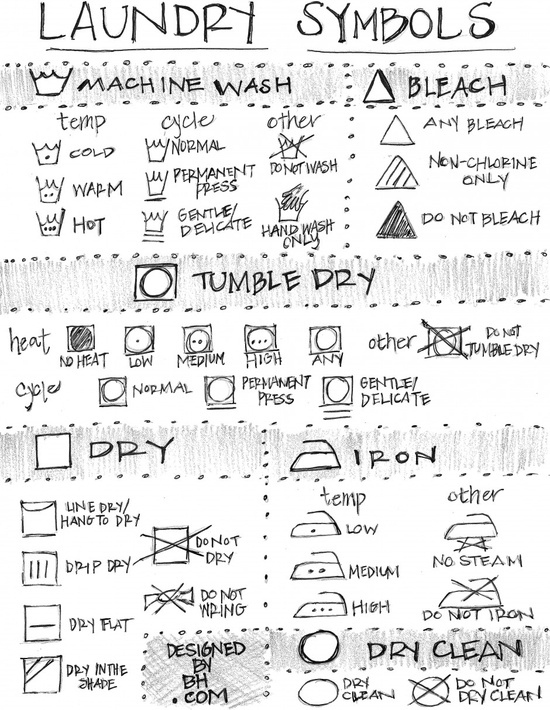 LAUNDRY SYMBOLS
MACHINE WASH
temp
COLD
WARM
HOT
cycle
NORMAL
PERMANENT
PRESS
GENTLE/
DELICATE
other
DO NOT WASH
HAND WASH
ONLY
BLEACH
ANY BLEACH
NON-CHLORINE
ONLY
DO NOT BLEACH
TUMBLE DRY
heat
NO HEAT
LOW
MEDIUM
HIGH
ANY
other
DO NOT
TUMBLE DRY
cycle
NORMAL
PERMANENT
PRESS
GENTLE/
DELICATE
DRY
LINE DRY/
HANG TO DRY
DRIP DRY
DRY FLAT
DRY IN THE
SHADE
DO NOT
DRY
DO NOT
WRING
IRON
temp
LOW
MEDIUM
HIGH
other
NO STEAM
DO NOT IRON
DRY CLEAN
DRY
CLEAN
DO NOT
DRY CLEAN
DESIGNED
BY
BH
.COM